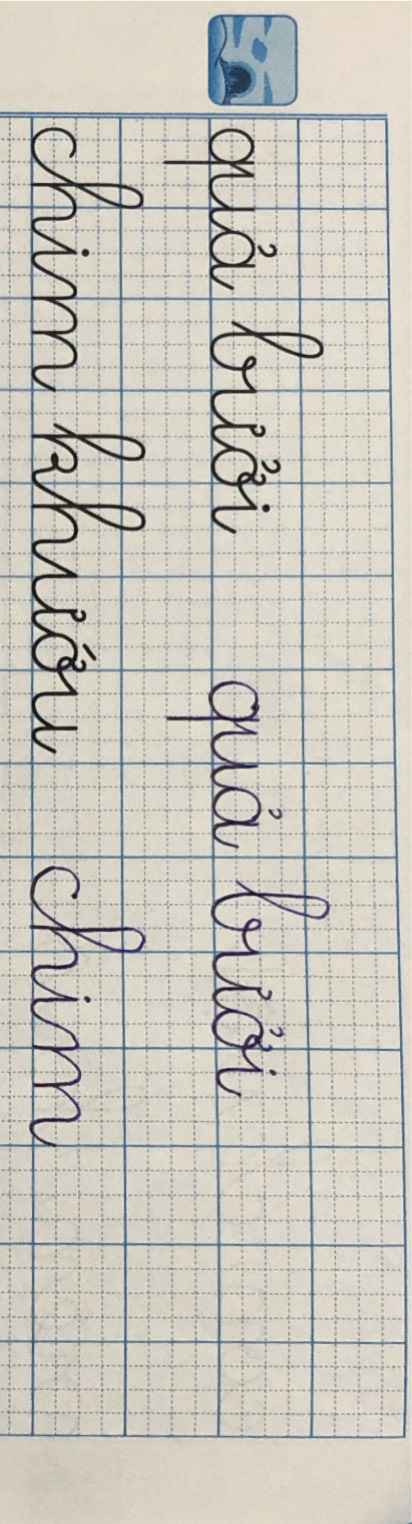 quả bưởi quả bưởi
chim khướu chim